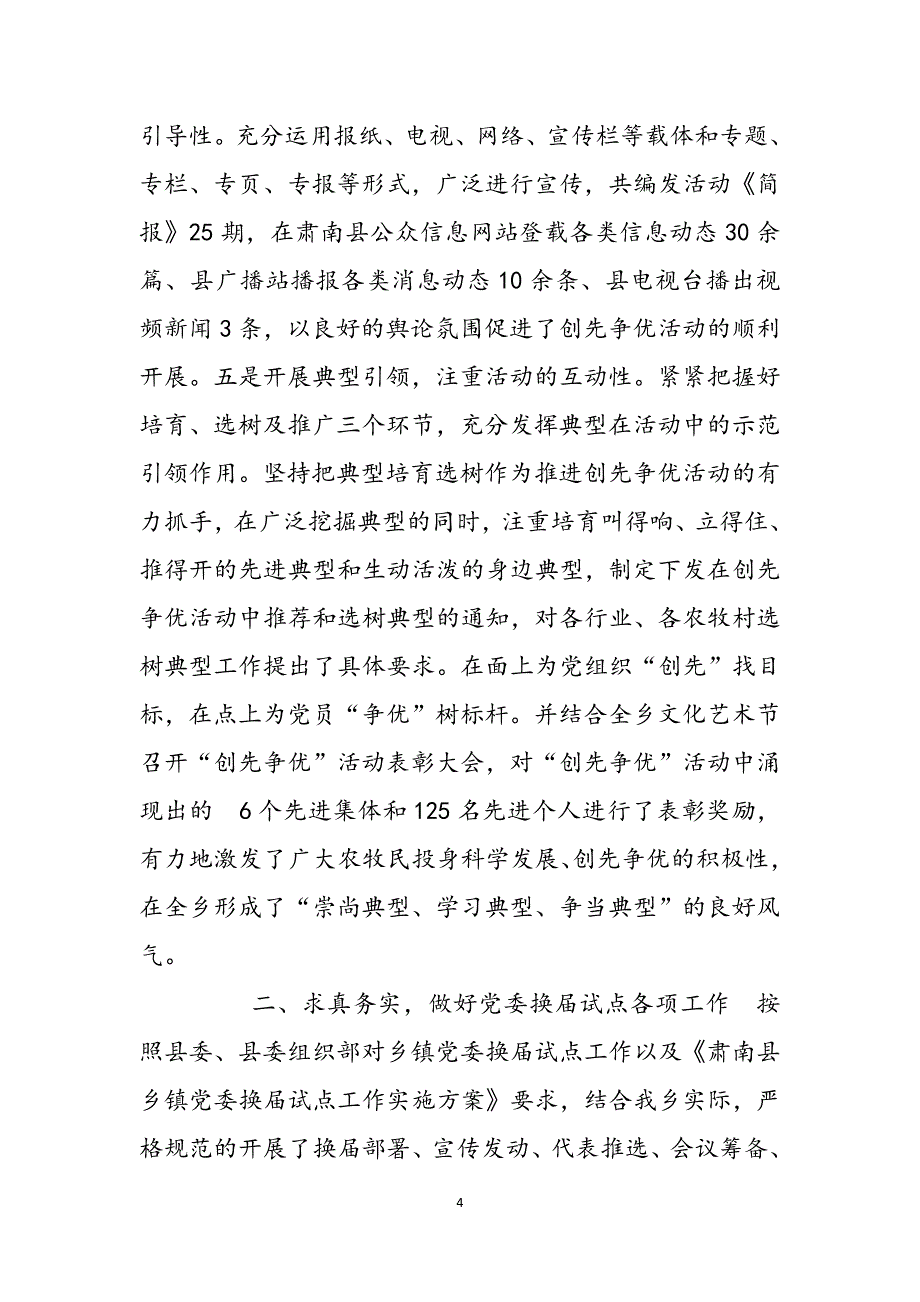 引导性。充分运用报纸、电视、网络、宣传栏等载体和专题、
专栏、专页、专报等形式，广泛进行宣传，共编发活动《简
报》25 期，在肃南县公众信息网站登载各类信息动态 30 余
篇、县广播站播报各类消息动态 10 余条、县电视台播出视
频新闻 3 条，以良好的舆论氛围促进了创先争优活动的顺利
开展。五是开展典型引领，注重活动的互动性。紧紧把握好
培育、选树及推广三个环节，充分发挥典型在活动中的示范
引领作用。坚持把典型培育选树作为推进创先争优活动的有
力抓手，在广泛挖掘典型的同时，注重培育叫得响、立得住、
推得开的先进典型和生动活泼的身边典型，制定下发在创先
争优活动中推荐和选树典型的通知，对各行业、各农牧村选
树典型工作提出了具体要求。在面上为党组织“创先”找目
标，在点上为党员“争优”树标杆。并结合全乡文化艺术节
召开“创先争优”活动表彰大会，对“创先争优”活动中涌
现出的　6 个先进集体和 125 名先进个人进行了表彰奖励，
有力地激发了广大农牧民投身科学发展、创先争优的积极性，
在全乡形成了“崇尚典型、学习典型、争当典型”的良好风
气。
二、求真务实，做好党委换届试点各项工作　按
照县委、县委组织部对乡镇党委换届试点工作以及《肃南县
乡镇党委换届试点工作实施方案》要求，结合我乡实际，严
格规范的开展了换届部署、宣传发动、代表推选、会议筹备、
4